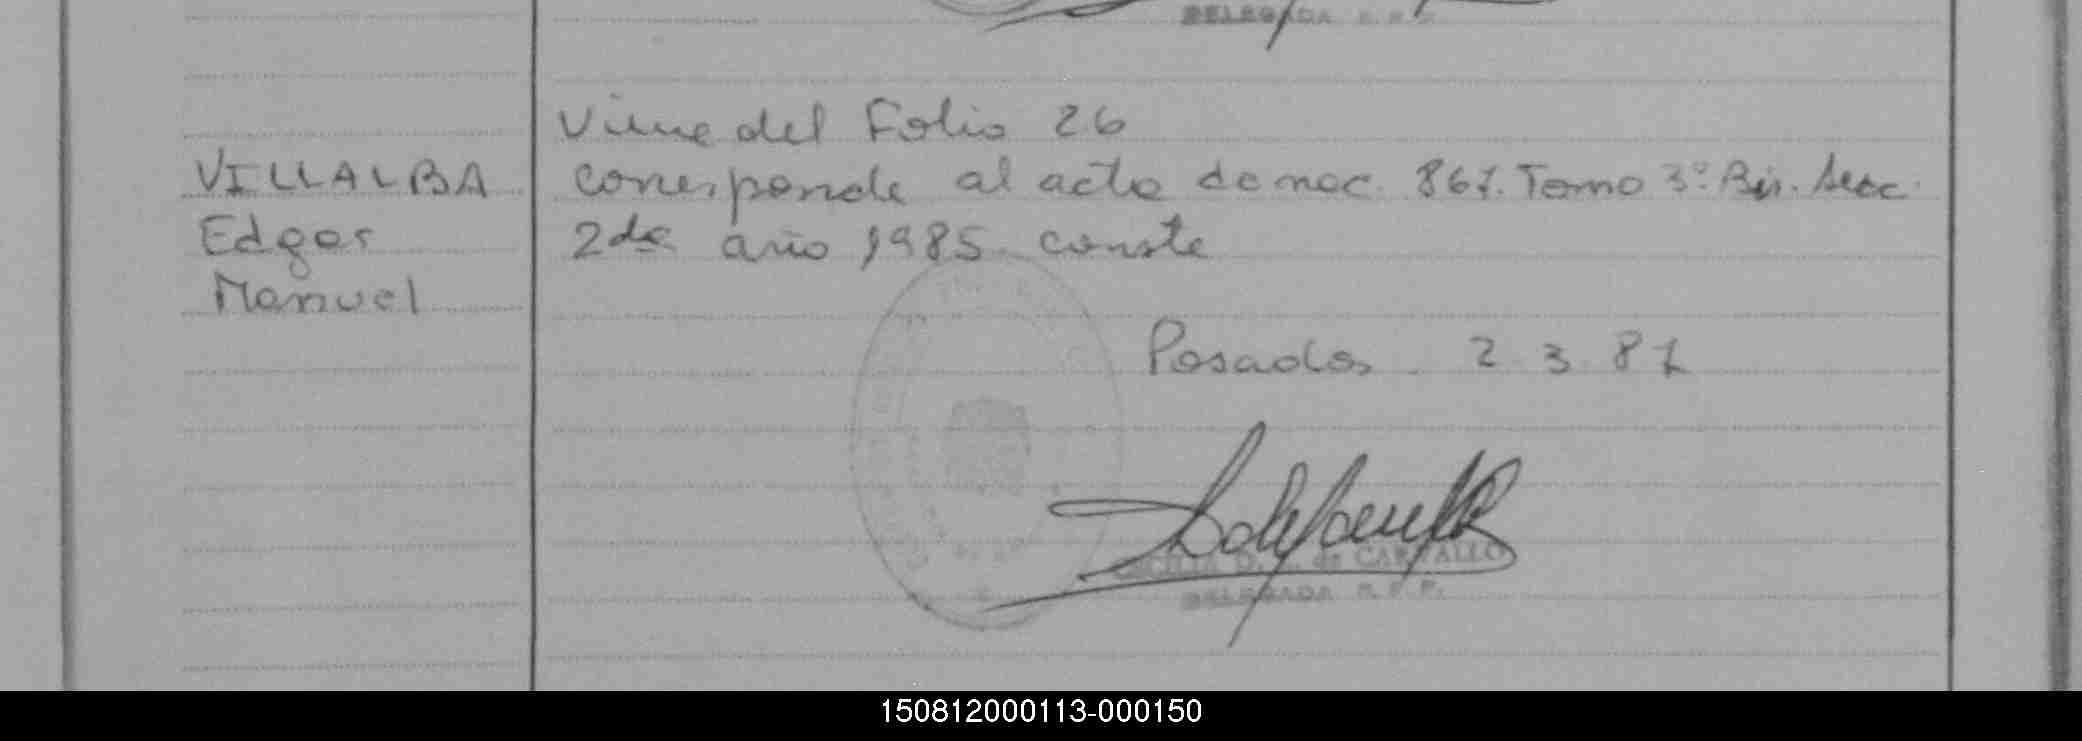 DELEGADA R.P.P.
Viene del Folio 26
VILLALBA
corresponde al acta de nac. 867. Tomo 3º Bis. Secc.
Edgar
2da año 1985 conste
Manuel
Posadas. 2.3.87
CECILIA D. de CARVALLO
DELEGADA R.P.P.
150812000113-000150